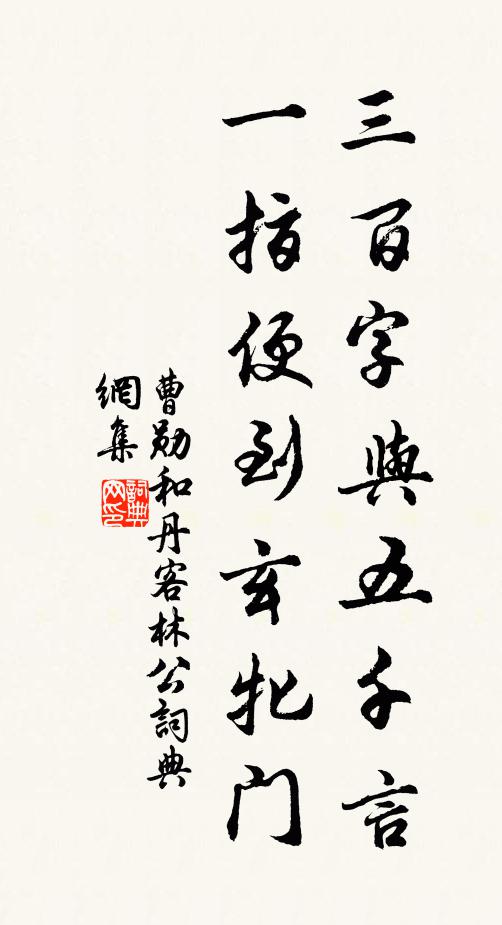 三百字與五千言
一指便到玄牝門
曹勛和丹客林公詞典
網集
詞典網印